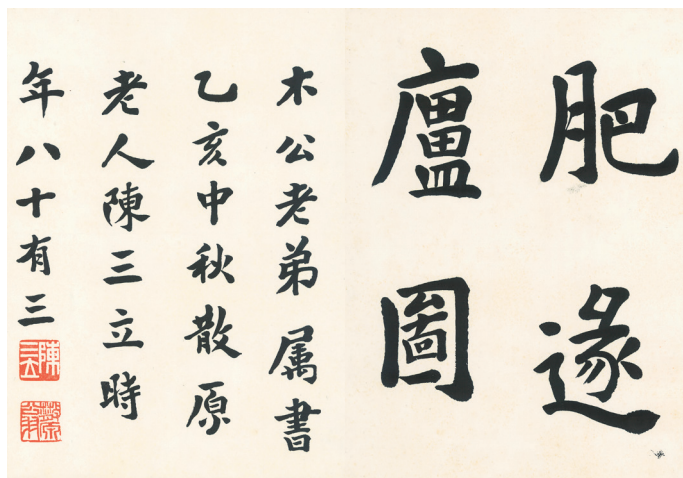 肥遯
廬圖
木公老弟属書
乙亥中秋散原
老人陳三立時
年八十有三
陳三立